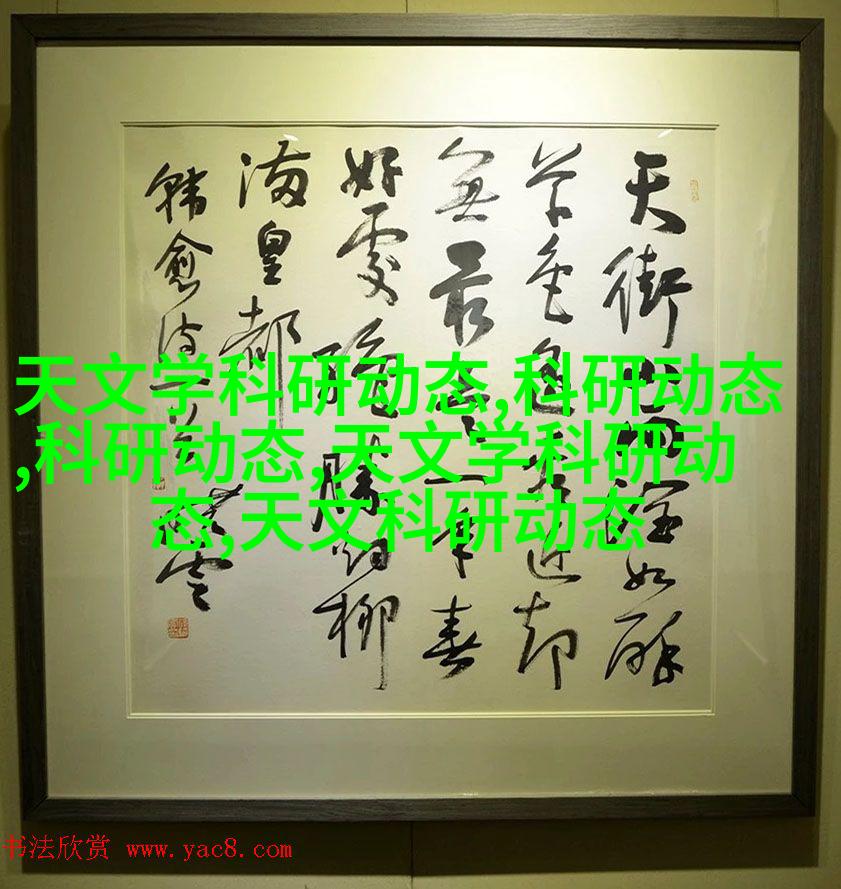 天街小雨潤如酥
草色遥看近却
無最是一年春
好處絶勝烟柳
滿皇都
韓愈詩一首
天文学科研动态,科研动态
,科研动态,天文学科研动
态,天文科研动态
书法欣赏 www.yac8.com